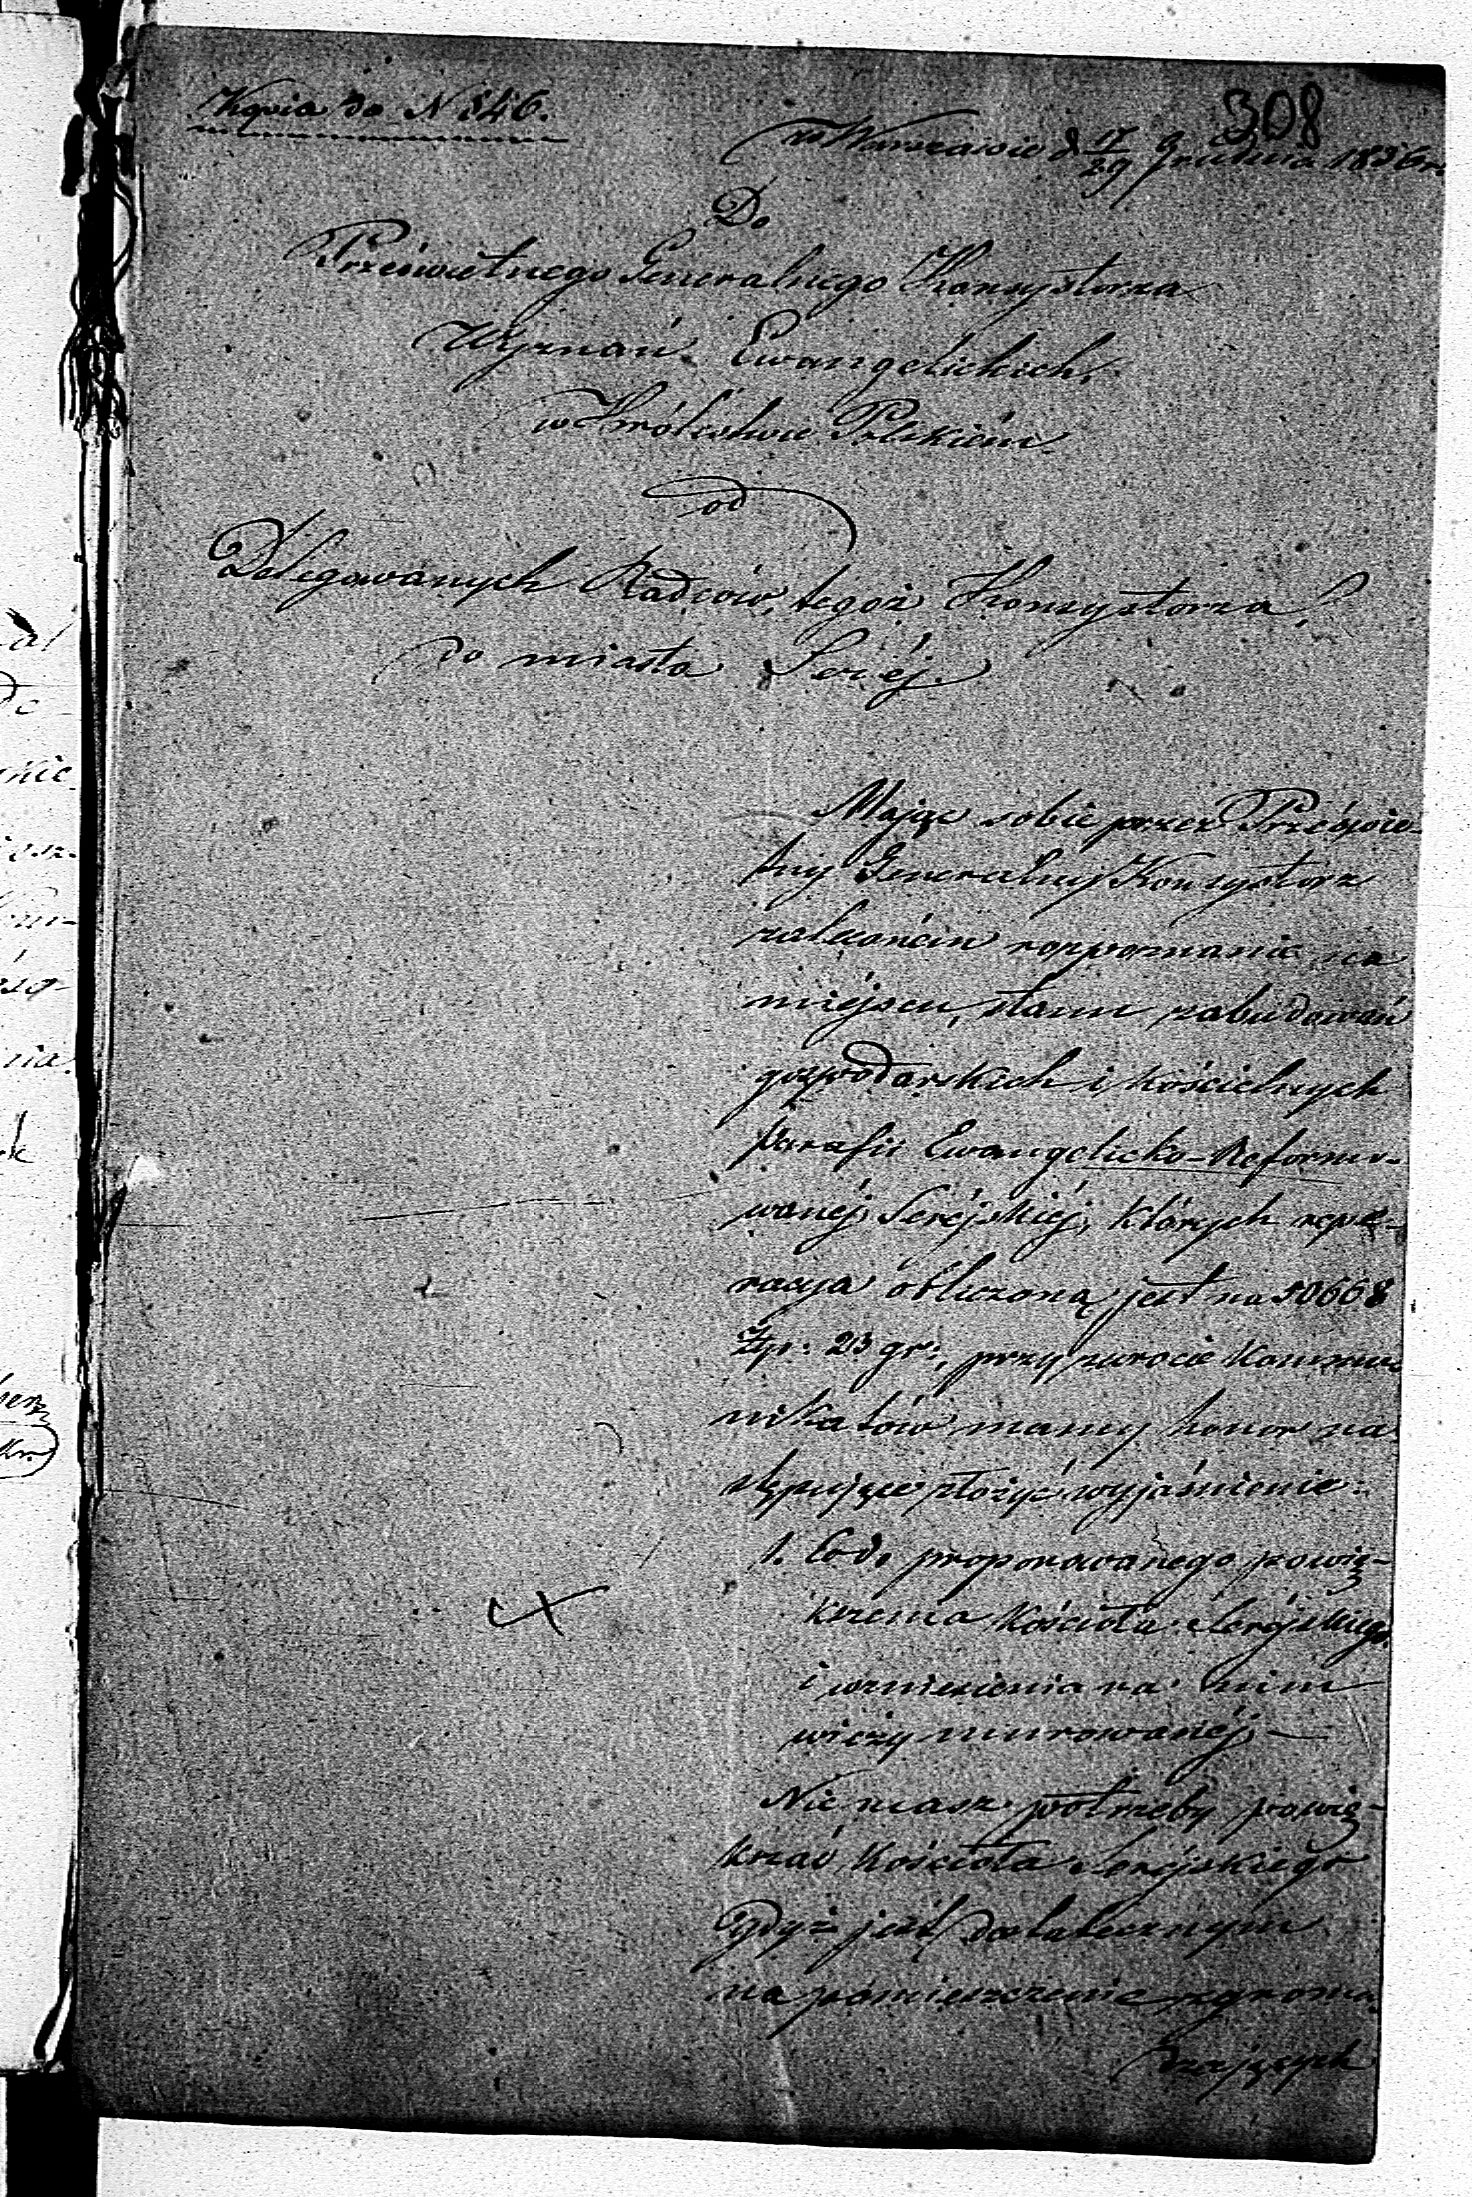 308
Kopia do N 546.
w Warszawie d 17/29 Grudnia 1836 r.
Do
Prześwietnego Generalnego Konsystorza
Wyznań Ewangelickich
w Królestwie Polskiém
od
Delegowanych Radców tegoż Konsystorza
do miasta Seréj.
Mając sobie przez Prześwie-
tny Generalny Konsystorz
zaleconém rozpoznanie na
miéjscu, stanu zabudowań
gospodarskich i kościelnych
parafii Ewangelicko-Reformo-
wanéj Seréjskiéj, których repe-
racyja obliczoną jest na 50668
Złp: 23 gr:, przy zwrocie kommu-
nikatów mamy honor na
stępujące złożyć wyjaśnienie:
1. Co do proponowanego powię-
kszenia Kościoła Seréjskiego
i wzniesienia na nim
wieży murowanéj —
Nie masz potrzeby powię-
kszać Kościoła Seréjskiego
gdyż jest dostatecznym
na pomieszczenie zgroma-
dzających